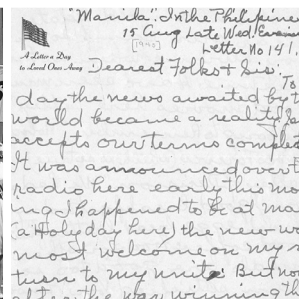 "Manila". In the Philippine
15 Aug Late Wed. Evenin
[1945]
Letter No 141,
A Letter a Day
to Loved Ones Away
Dearest Folks & Sis: To
day the news awaited by t
world became a reality Ja
accepts our terms comple
It was announced over t
radio here early this mo
ing I happened to be at ma
(a Holy day here) the new w
most welcome on my r
turn to my unit. But no
after the war winning th